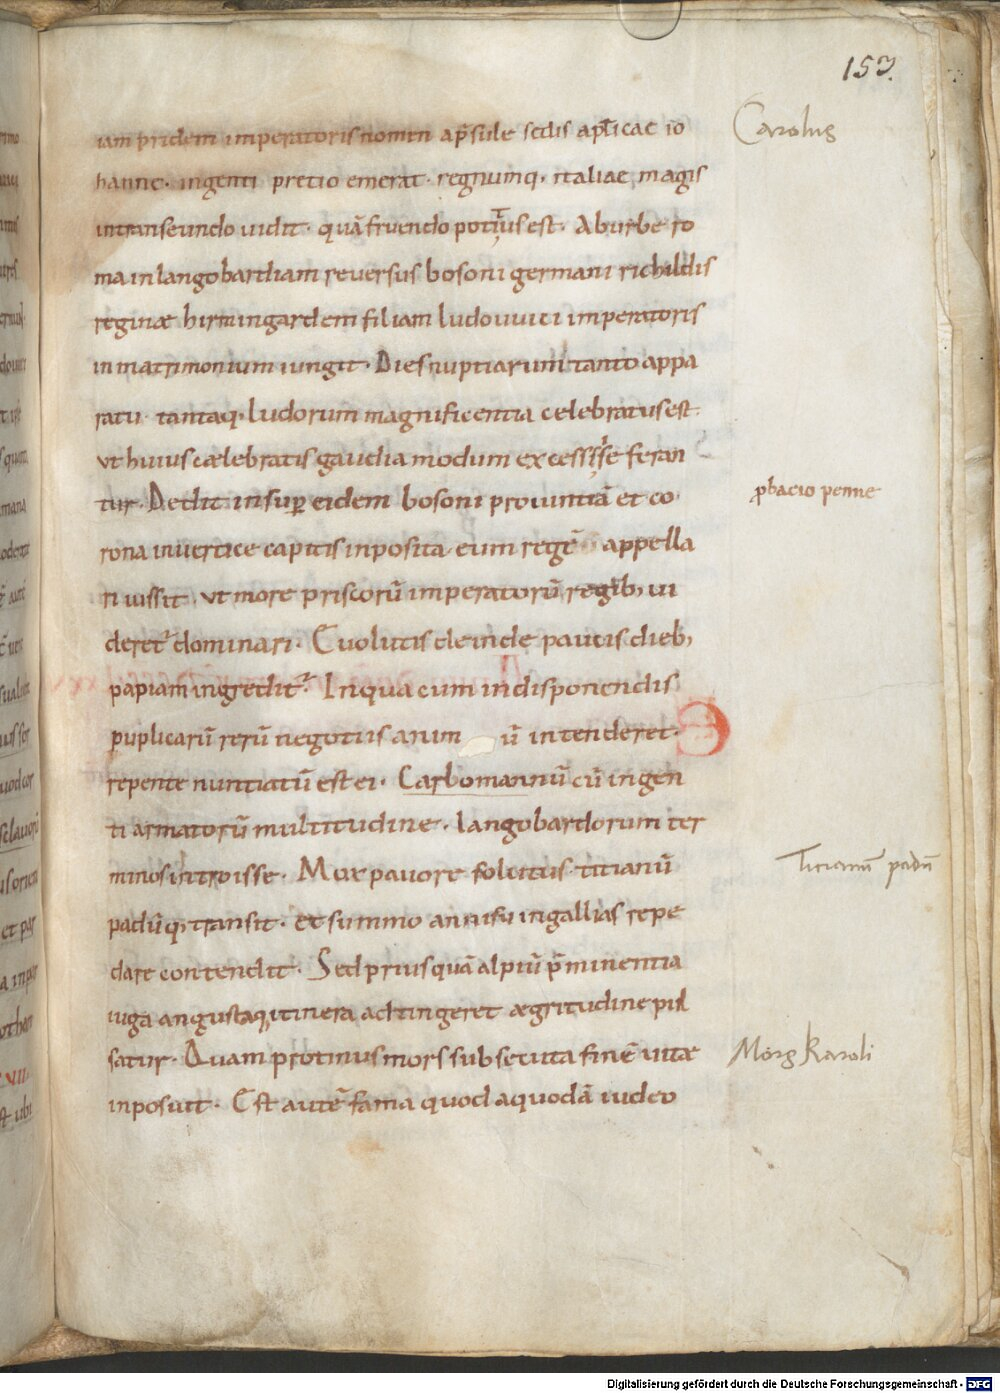 153.
iam pridem imperatoris nomen ap̄sule sedis ap̄licae io
Carolus
hanne · ingenti pretio emerat · regnumq · italiae magis
intranseundo uidit · quā fruendo potitus est · Ab urbe ro
ma in langobardiam reuersus bosoni germani richildis
reginæ hirmingardem filiam ludouuici imperatoris
in matrimonium iungit · Dies nuptiarum tanto appa
ratu · tantaq · ludorum magnificentia celebratus est ·
ut huius cælebratis gaudia modum excessisse feran
tur · Dedit insup eidem bosoni prouintiā et co
ꝓbacio penne
rona inuertice capitis inposita eum regē appella
ri iussit · ut more priscorū imperatorū regib; ui
deret᷑ dominari · Euolutis deinde paucis dieb;
papiam ingredit᷑ · In qua cum in disponendis
puplicarū rerū negotiis anim ū intenderet ·
repente nuntiatū est ei · Carlomannū cū ingen
ti armatorū multitudine · langobardorum ter
minos introisse · Mox pauore solutus · titianū
Ticianū padū
padūq; transit · et summo annisu in gallias repe
dare contendit · Sed priusquā alpiū p̄minentia
iuga angustaq; itinera adtingeret ægritudine pul
satur · Quam protinus mors subsecuta finē uitæ
Mors Karoli
inposuit · Est autē fama quod a quodā iudeo
Digitalisierung gefördert durch die Deutsche Forschungsgemeinschaft - DFG